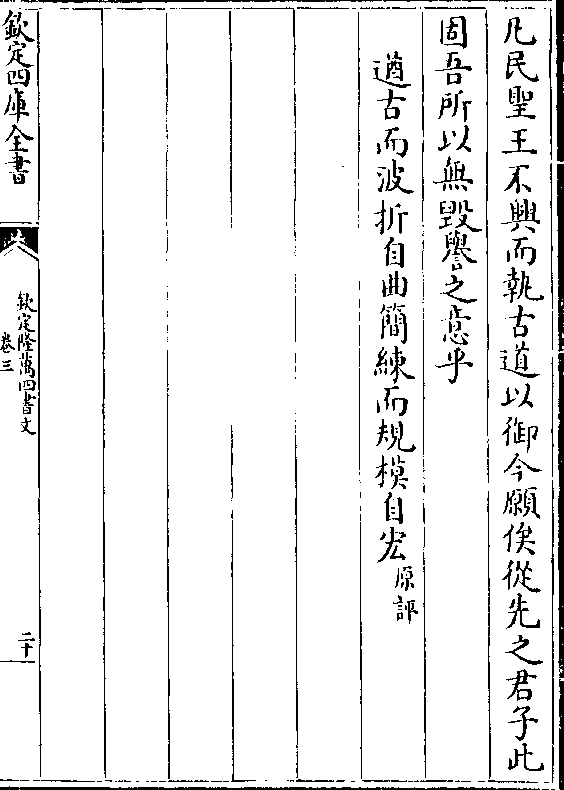 凡民聖王不興而執古道以御今願俟從先之君子此
固吾所以無毀譽之意乎
遒古而波折自曲簡練而規模自宏原評
欽定四庫全書
欽定隆萬四書文
卷三
二十